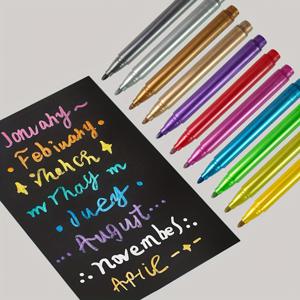 January ~
• Febiuary •
✦ March ✦
~ May m
• Juey •
... August ...
:• novembes •:
Apie -✦-